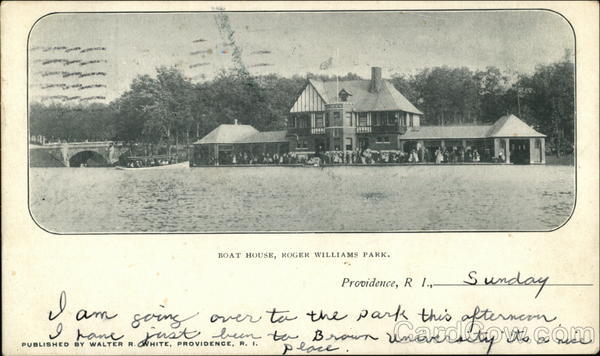 BOAT HOUSE, ROGER WILLIAMS PARK.
Providence, R I., Sunday
I am going over to the park this afternoon
I have just been to Brown University its a nice
place.
PUBLISHED BY WALTER R. WHITE, PROVIDENCE, R. I.
CardCow.com